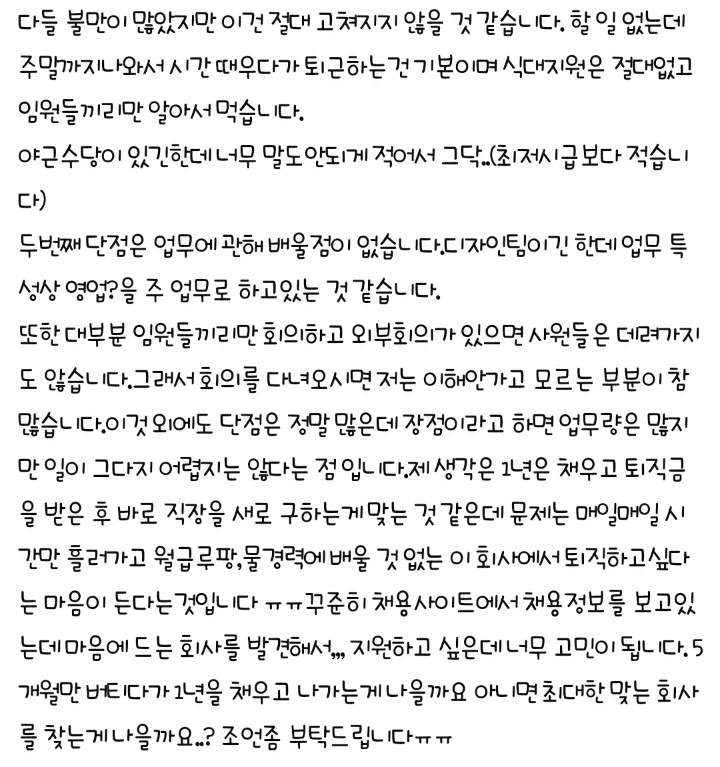 다들 불만이 많았지만 이건 절대 고쳐지지 않을 것 같습니다. 할 일 없는데
주말까지나와서 시간 때우다가 퇴근하는건 기본이며 식대지원은 절대없고
임원들끼리만 알아서 먹습니다.
야근수당이 있긴한데 너무 말도안되게 적어서 그닥..(최저시급보다 적습니
다)
두번째 단점은 업무에 관해 배울점이 없습니다.디자인팀이긴 한데 업무 특
성상 영업?을 주 업무로 하고있는 것 같습니다.
또한 대부분 임원들끼리만 회의하고 외부회의가 있으면 사원들은 데려가지
도 않습니다.그래서 회의를 다녀오시면 저는 이해안가고 모르는 부분이 참
많습니다.이것 외에도 단점은 정말 많은데 장점이라고 하면 업무량은 많지
만 일이 그다지 어렵지는 않다는 점입니다.제 생각은 1년은 채우고 퇴직금
을 받은 후 바로 직장을 새로 구하는게 맞는 것 같은데 문제는 매일매일 시
간만 흘러가고 월급루팡,물경력에 배울 것 없는 이 회사에서 퇴직하고싶다
는 마음이 든다는것입니다 ㅠㅠ꾸준히 채용사이트에서 채용정보를 보고있
는데 마음에 드는 회사를 발견해서,,, 지원하고 싶은데 너무 고민이 됩니다. 5
개월만 버티다가 1년을 채우고 나가는게 나을까요 아니면 최대한 맞는 회사
를 찾는게 나을까요..? 조언좀 부탁드립니다ㅠㅠ